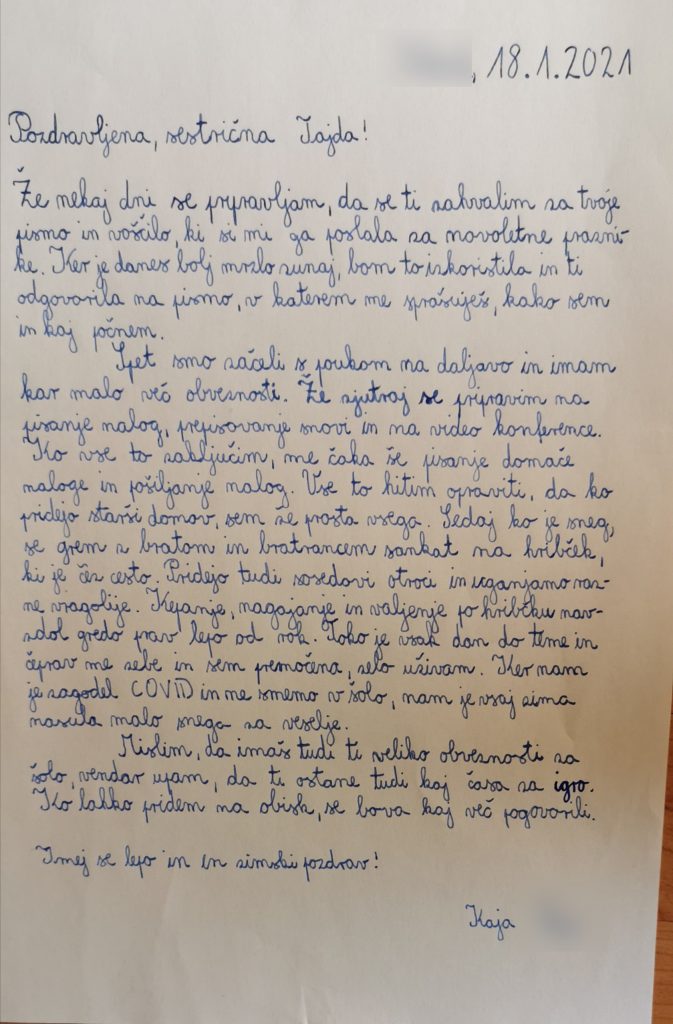 , 18.1.2021
Pozdravljena, sestrična Tajda!
Že nekaj dni se pripravljam, da se ti zahvalim za tvoje
pismo in voščilo, ki si mi ga poslala za novoletne prazni-
ke. Ker je danes bolj mrzlo zunaj, bom to izkoristila in ti
odgovorila na pismo, v katerem me sprašuješ, kako sem
in kaj počnem.
Spet smo začeli s poukom na daljavo in imam
kar malo več obveznosti. Že zjutraj se pripravim na
pisanje nalog, prepisovanje snovi in na video konference.
Ko vse to zaključim, me čaka še pisanje domače
naloge in pošiljanje nalog. Vse to hitim opraviti, da ko
pridejo starši domov, sem že prosta vsega. Sedaj ko je sneg,
se grem z bratom in bratrancem sankat na hribček,
ki je čez cesto. Pridejo tudi sosedovi otroci in uganjamo raz-
ne vragolije. Kepanje, nagajanje in valjenje po hribčku nav-
zdol gredo prav lepo od rok. Tako je vsak dan do teme in
čeprav me zebe in sem premočena, zelo uživam. Ker nam
je zagodel COVID in ne smemo v šolo, nam je vsaj zima
nasula malo snega za veselje.
Mislim, da imaš tudi ti veliko obveznosti za
šolo, vendar upam, da ti ostane tudi kaj časa za igro.
Ko lahko pridem na obisk, se bova kaj več pogovorili.
Imej se lepo in en zimski pozdrav!
Kaja